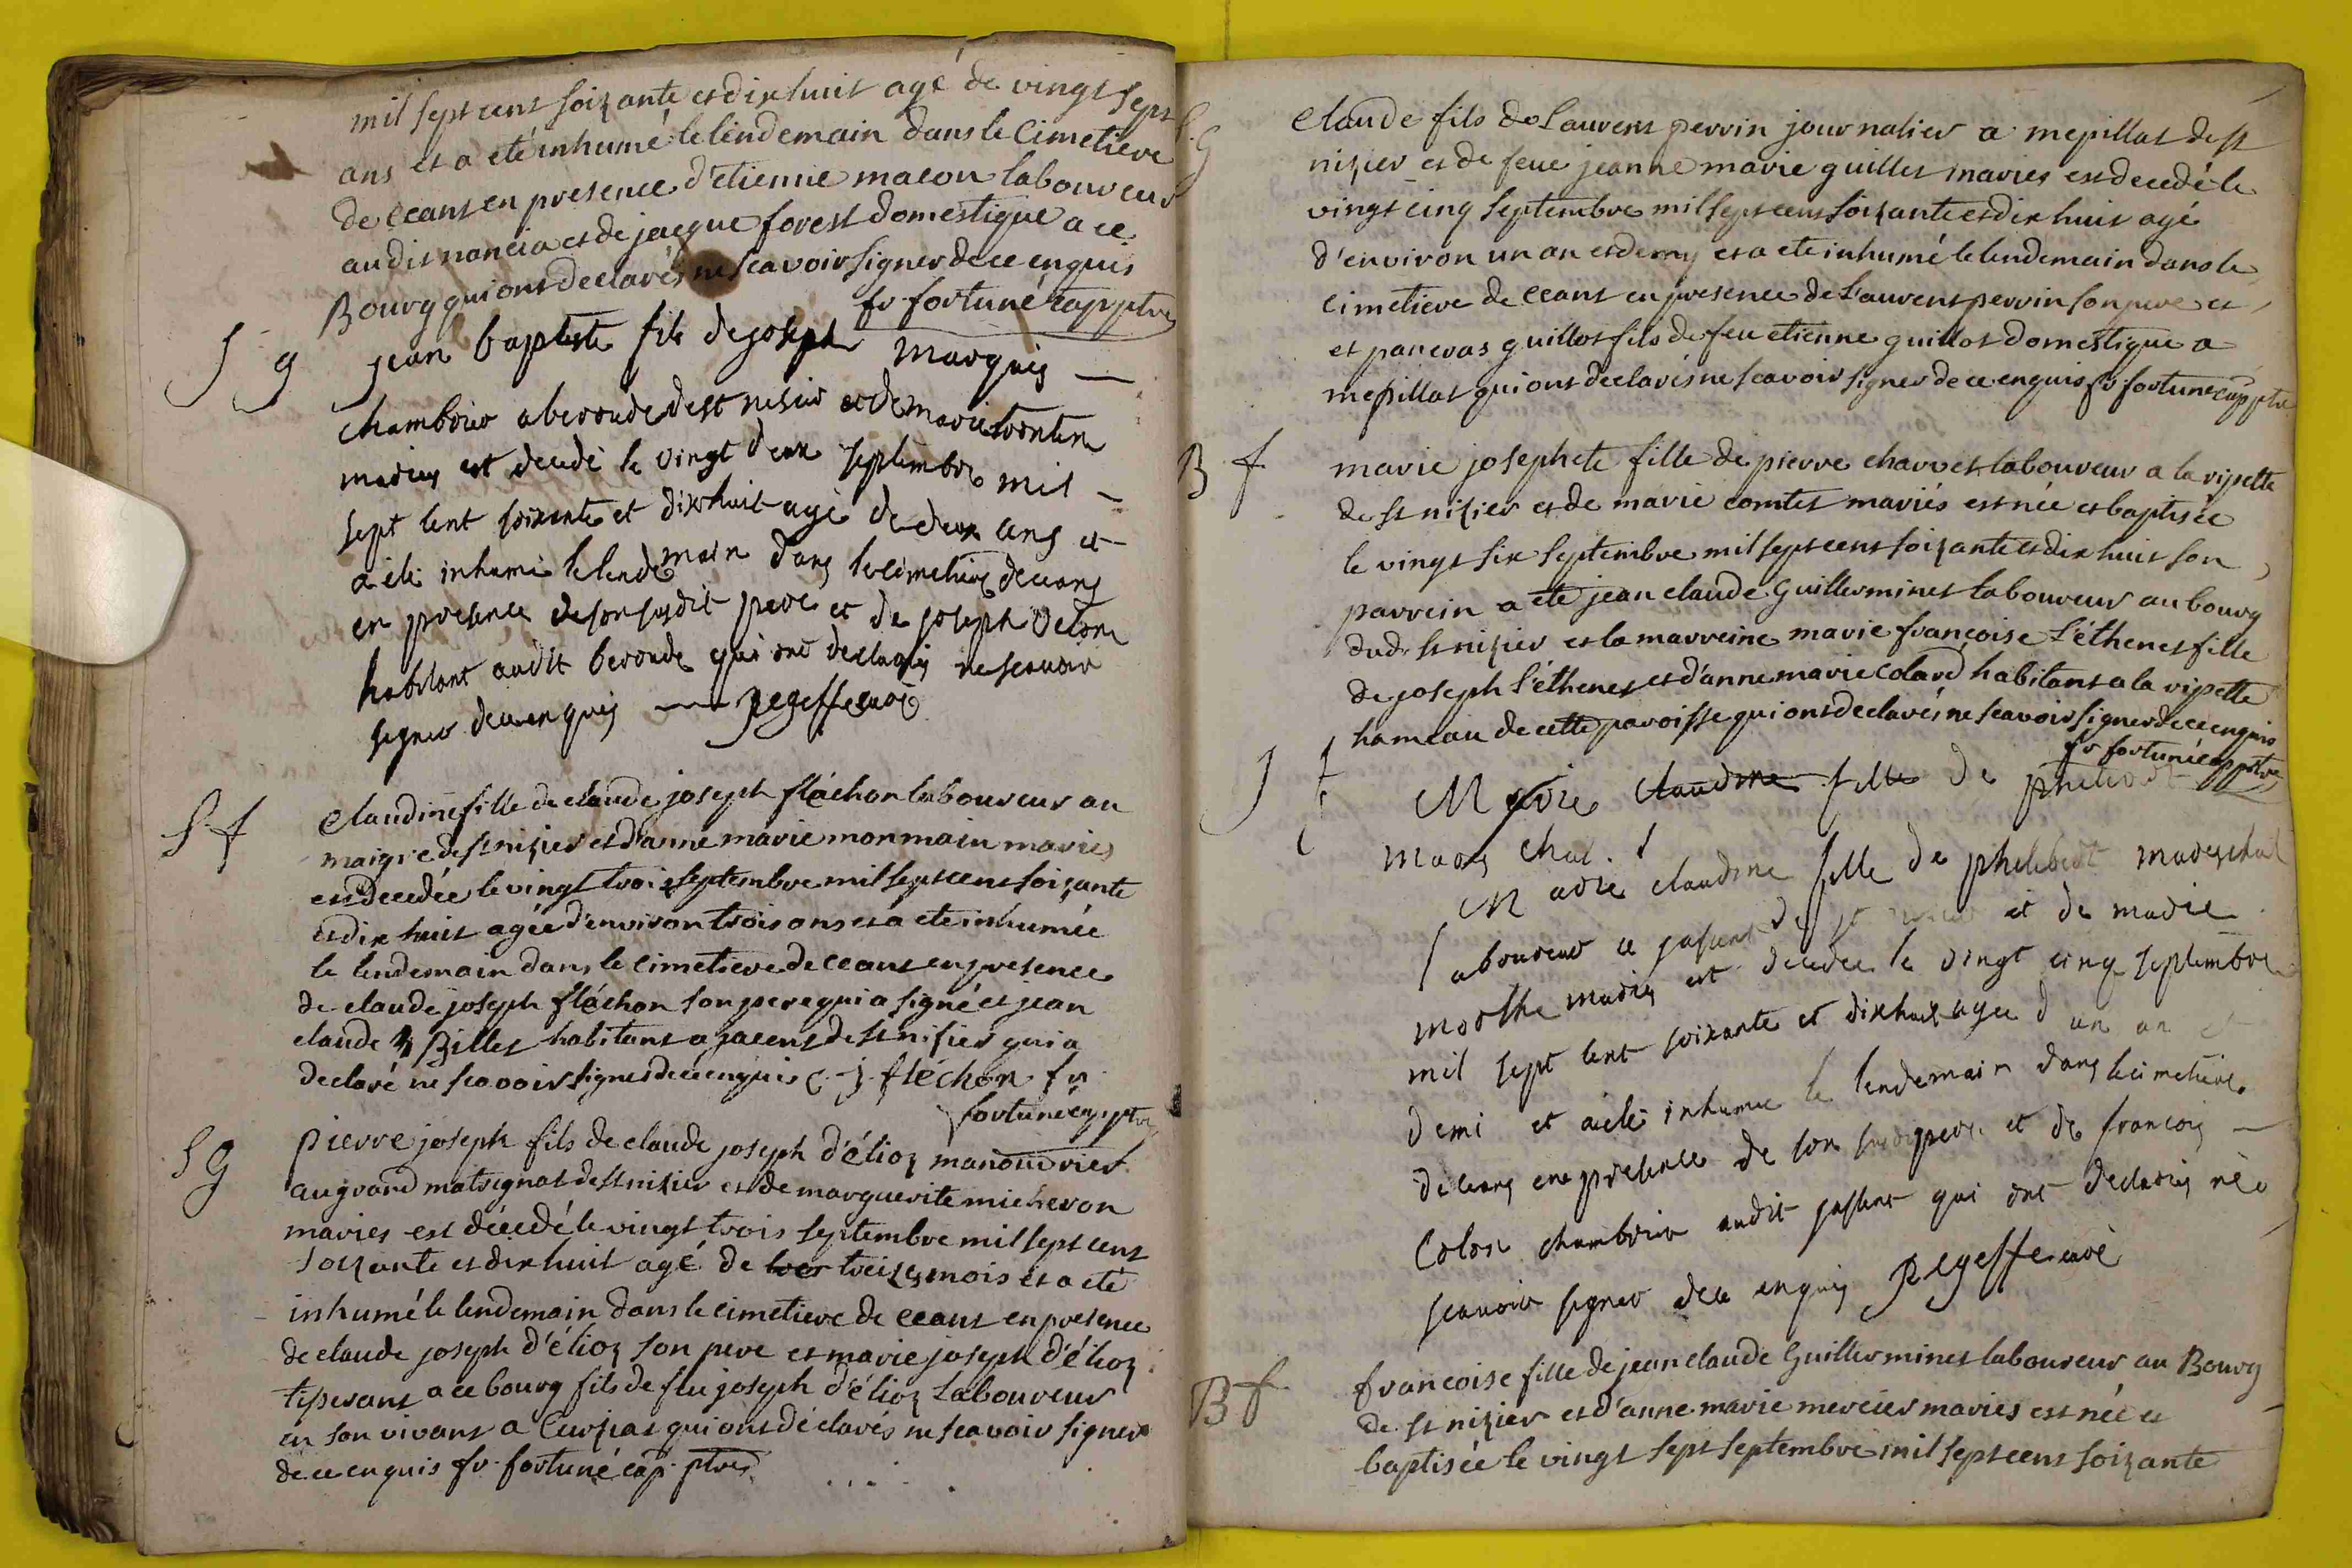 mil sept cent soizante et dix huit agé de vingt sept
ans et a eté inhumé le lendemain dans le Cimetiere
de ceans en presence d'etienne macon laboureur
audit nancia et de jacque forest domestique a ce
Bourg qui ont declarés ne scavoir signer de ce enquis
fr fortuné cap ptre
S g
jean baptiste fils de joseph marquis
chambrier a beroude de st nisier et de marie
mariés est decedé le vingt deux septembre mil
sept cent soixante et dixhuit agé de deux ans et
a été inhumé le lendemain dans le cimetiere de ceans
en presence de son susdit pere et de joseph
habitant audit beroude qui ont declarés ne scavoir
signer de ce enquis
S f
Claudine fille de claude joseph fléchon laboureur au
maigre de st nizier et d'anne marie monmain mariés
est decedée le vingt trois septembre mil sept cent soizante
et dix huit agée d'environ trois ans et a eté inhumée
le lendemain dans le cimetiere de ceans en presence
de claude joseph fléchon son pere qui a signé et jean
claude Billet habitant a jacens de st nisier qui a
declaré ne scavoir signer de ce enquis c. j. fléchon fr
fortuné cap. ptre
S g
pierre joseph fils de claude joseph d'élioz manouvrier
au grand matregnat de st nizier et de marguerite micheron
mariés est décedé le vingt trois septembre mil sept cent
soizante et dix huit agé de treize mois et a eté
inhumé le lendemain dans le cimetiere de ceans en presence
de claude joseph d'élioz son pere et marie joseph d'élioz
tiserant a ce bourg fils de feu joseph d'élioz Laboureur
en son vivant a Curziat qui ont déclarés ne scavoir signer
de ce enquis fr. fortuné cap. ptre
S. G
Claude fils de Laurent perrin journalier a mepillat de st
nizier et de feue jeanne marie guillet mariés est decedé le
vingt cinq septembre mil sept cent soizante et dix huit agé
d'environ un an et demy et a eté inhumé le lendemain dans le
cimetiere de ceans en presence de Laurent perrin son pere et
et pancras guillot fils de feu etienne guillot domestique a
mepillat qui ont declarés ne scavoir signer de ce enquis fr fortuné cap ptre
B f
marie josephete fille de pierre charvet laboureur a la vipette
de st nizier et de marie comtet mariés est née et baptisée
le vingt six septembre mil sept cent soizante et dix huit son
parrein a eté jean claude Guillerminet laboureur au bourg
dud. st nizier et la marreine marie francoise L'éthenet fille
de joseph L'éthenet et d'anne marie Colard habitant a la vipette
hameau de cette paroisse qui ont declarés ne scavoir signer de ce enquis
fr fortuné cap ptre
S f
Marie Claudine fille de philibert
mares chal.
Marie claudine fille de philibert mareschal
laboureur a de st et de marie
morthe mariés est decedee le vingt cinq septembre
mil sept cent soixante et dixhuit agee d un an et
demi et a eté inhumee le lendemain dans le cimetiere
de ceans en presence de son susdit pere et de francois
Colon chambrier audit qui ont declarés ne
scavoir signer de ce enquis
B f
francoise fille de jean claude Guillerminet laboureur au Bourg
de st nizier et d'anne marie mercier mariés est née et
baptisée le vingt sept septembre mil sept cent soizante